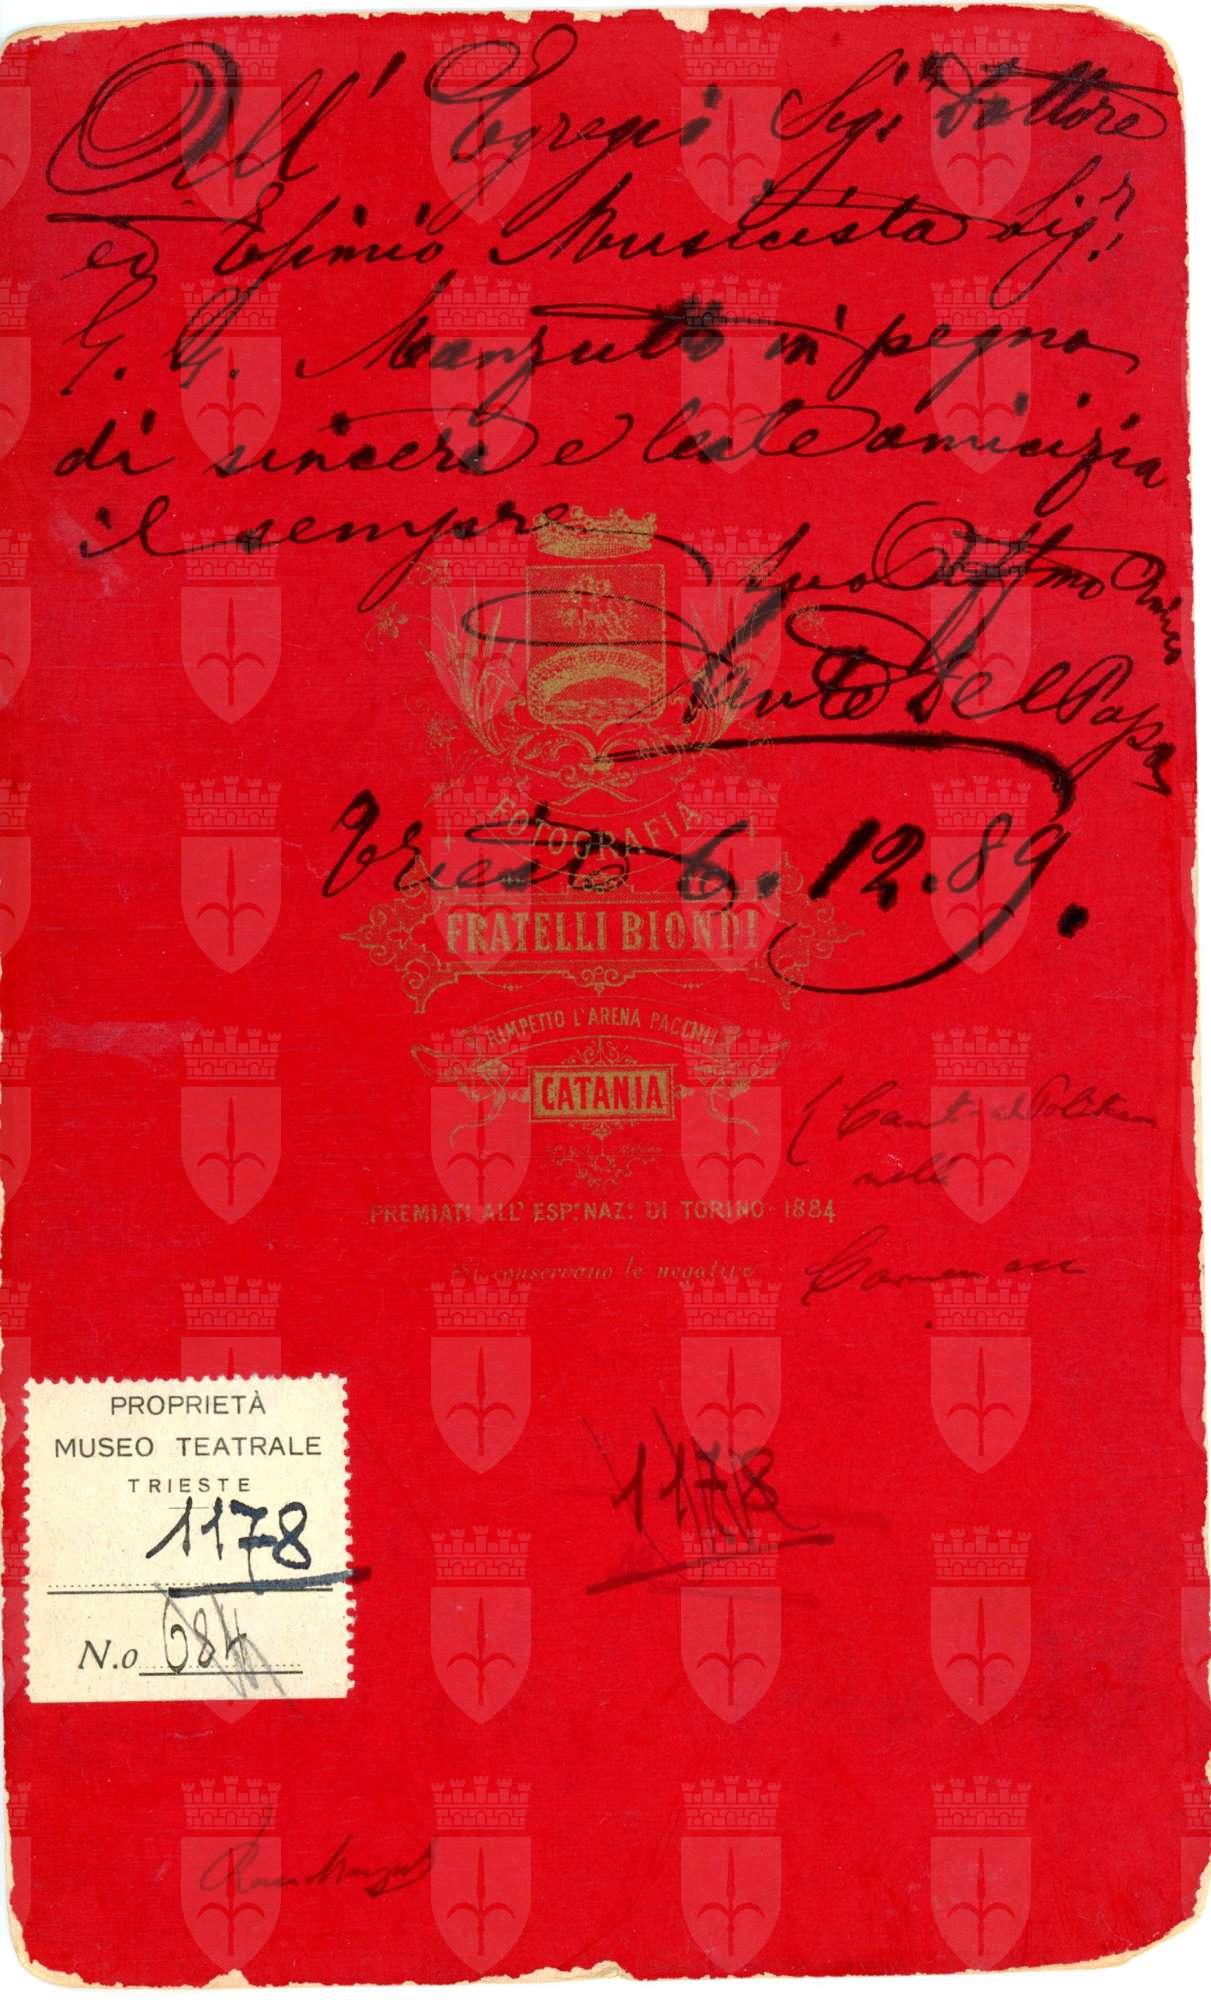 All' Egregio Sigr Dottore
ed Esimio Musicista Sigr
G. G. Manzutto in pegno
di sincera e leale amicizia
il sempre
suo Affmo Amico
Dante Del Papa
Trieste 6. 12. 89.
FOTOGRAFIA
FRATELLI BIONDI
RIMPETTO L'ARENA PACCINI
CATANIA
PREMIATI ALL' ESP. NAZ. DI TORINO 1884
Si conservano le negative
(Cantò al Politeama
nella
Carmen
1178
PROPRIETÀ
MUSEO TEATRALE
TRIESTE
1178
N.o 684